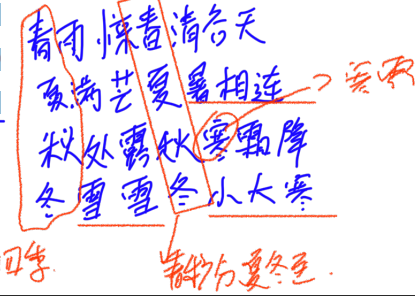 春雨惊春清谷天
夏满芒夏暑相连
寒露
秋处露秋寒霜降
冬雪雪冬小大寒
四季.
春秋分夏冬至.